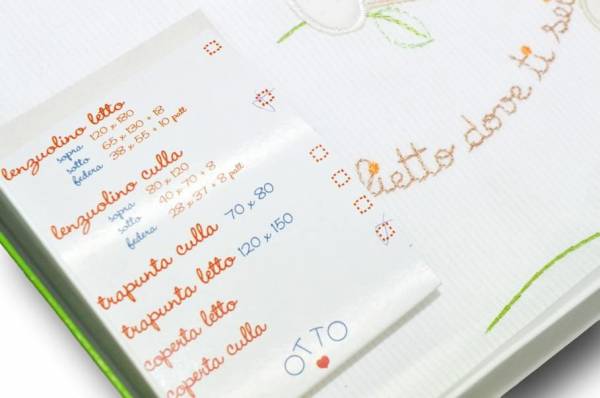 lenzuolino letto
sopra 120 x 180
sotto 65 x 130 + 18
federa 38 x 55 + 10 patt
lenzuolino culla
sopra 80 x 120
sotto 40 x 70 + 8
federa 28 x 37 + 8 patt
trapunta culla 70 x 80
trapunta letto 120 x 150
coperta letto
coperta culla
OTTO
lietto dove ti